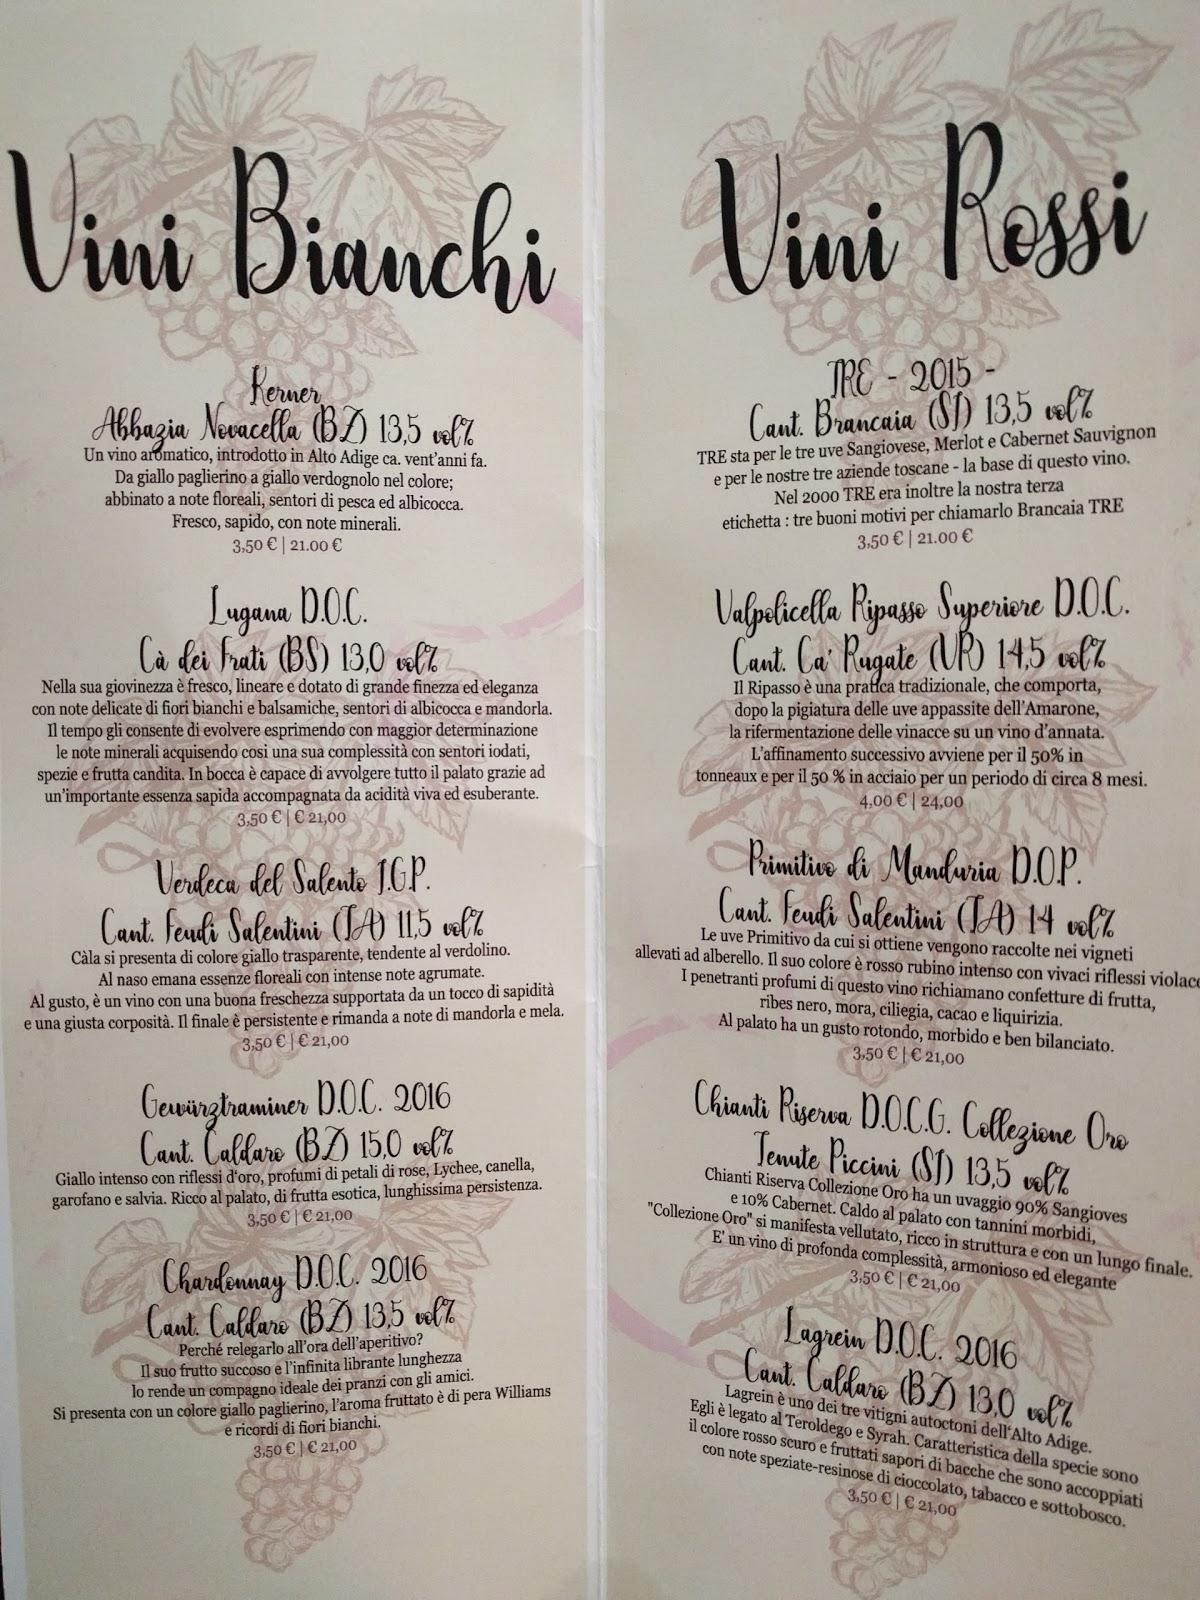 Vini Bianchi
Kerner
Abbazia Novacella (BZ) 13,5 vol%
Un vino aromatico, introdotto in Alto Adige ca. vent'anni fa.
Da giallo paglierino a giallo verdognolo nel colore;
abbinato a note floreali, sentori di pesca ed albicocca.
Fresco, sapido, con note minerali.
3,50 € | 21.00 €
Lugana D.O.C.
Cà dei Frati (BS) 13,0 vol%
Nella sua giovinezza è fresco, lineare e dotato di grande finezza ed eleganza
con note delicate di fiori bianchi e balsamiche, sentori di albicocca e mandorla.
Il tempo gli consente di evolvere esprimendo con maggior determinazione
le note minerali acquisendo così una sua complessità con sentori iodati,
spezie e frutta candita. In bocca è capace di avvolgere tutto il palato grazie ad
un'importante essenza sapida accompagnata da acidità viva ed esuberante.
3,50 € | € 21,00
Verdeca del Salento I.G.P.
Cant. Feudi Salentini (TA) 11,5 vol%
Càla si presenta di colore giallo trasparente, tendente al verdolino.
Al naso emana essenze floreali con intense note agrumate.
Al gusto, è un vino con una buona freschezza supportata da un tocco di sapidità
e una giusta corposità. Il finale è persistente e rimanda a note di mandorla e mela.
3,50 € | € 21,00
Gewürztraminer D.O.C. 2016
Cant. Caldaro (BZ) 15,0 vol%
Giallo intenso con riflessi d'oro, profumi di petali di rose, Lychee, canella,
garofano e salvia. Ricco al palato, di frutta esotica, lunghissima persistenza.
3,50 € | € 21,00
Chardonnay D.O.C. 2016
Cant. Caldaro (BZ) 13,5 vol%
Perché relegarlo all'ora dell'aperitivo?
Il suo frutto succoso e l'infinita librante lunghezza
lo rende un compagno ideale dei pranzi con gli amici.
Si presenta con un colore giallo paglierino, l'aroma fruttato è di pera Williams
e ricordi di fiori bianchi.
3,50 € | € 21,00
Vini Rossi
TRE - 2015 -
Cant. Brancaia (SI) 13,5 vol%
TRE sta per le tre uve Sangiovese, Merlot e Cabernet Sauvignon
e per le nostre tre aziende toscane - la base di questo vino.
Nel 2000 TRE era inoltre la nostra terza
etichetta : tre buoni motivi per chiamarlo Brancaia TRE
3,50 € | 21.00 €
Valpolicella Ripasso Superiore D.O.C.
Cant. Ca' Rugate (VR) 14,5 vol%
Il Ripasso è una pratica tradizionale, che comporta,
dopo la pigiatura delle uve appassite dell'Amarone,
la rifermentazione delle vinacce su un vino d'annata.
L'affinamento successivo avviene per il 50% in
tonneaux e per il 50 % in acciaio per un periodo di circa 8 mesi.
4,00 € | 24,00
Primitivo di Manduria D.O.P.
Cant. Feudi Salentini (TA) 14 vol%
Le uve Primitivo da cui si ottiene vengono raccolte nei vigneti
allevati ad alberello. Il suo colore è rosso rubino intenso con vivaci riflessi violace
I penetranti profumi di questo vino richiamano confetture di frutta,
ribes nero, mora, ciliegia, cacao e liquirizia.
Al palato ha un gusto rotondo, morbido e ben bilanciato.
3,50 € | € 21,00
Chianti Riserva D.O.C.G. Collezione Oro
Tenute Piccini (SI) 13,5 vol%
Chianti Riserva Collezione Oro ha un uvaggio 90% Sangioves
e 10% Cabernet. Caldo al palato con tannini morbidi,
"Collezione Oro" si manifesta vellutato, ricco in struttura e con un lungo finale.
E' un vino di profonda complessità, armonioso ed elegante
3,50 € | € 21,00
Lagrein D.O.C. 2016
Cant. Caldaro (BZ) 13,0 vol%
Lagrein è uno dei tre vitigni autoctoni dell'Alto Adige.
Egli è legato al Teroldego e Syrah. Caratteristica della specie sono
il colore rosso scuro e fruttati sapori di bacche che sono accoppiati
con note speziate-resinose di cioccolato, tabacco e sottobosco.
3,50 € | € 21,00